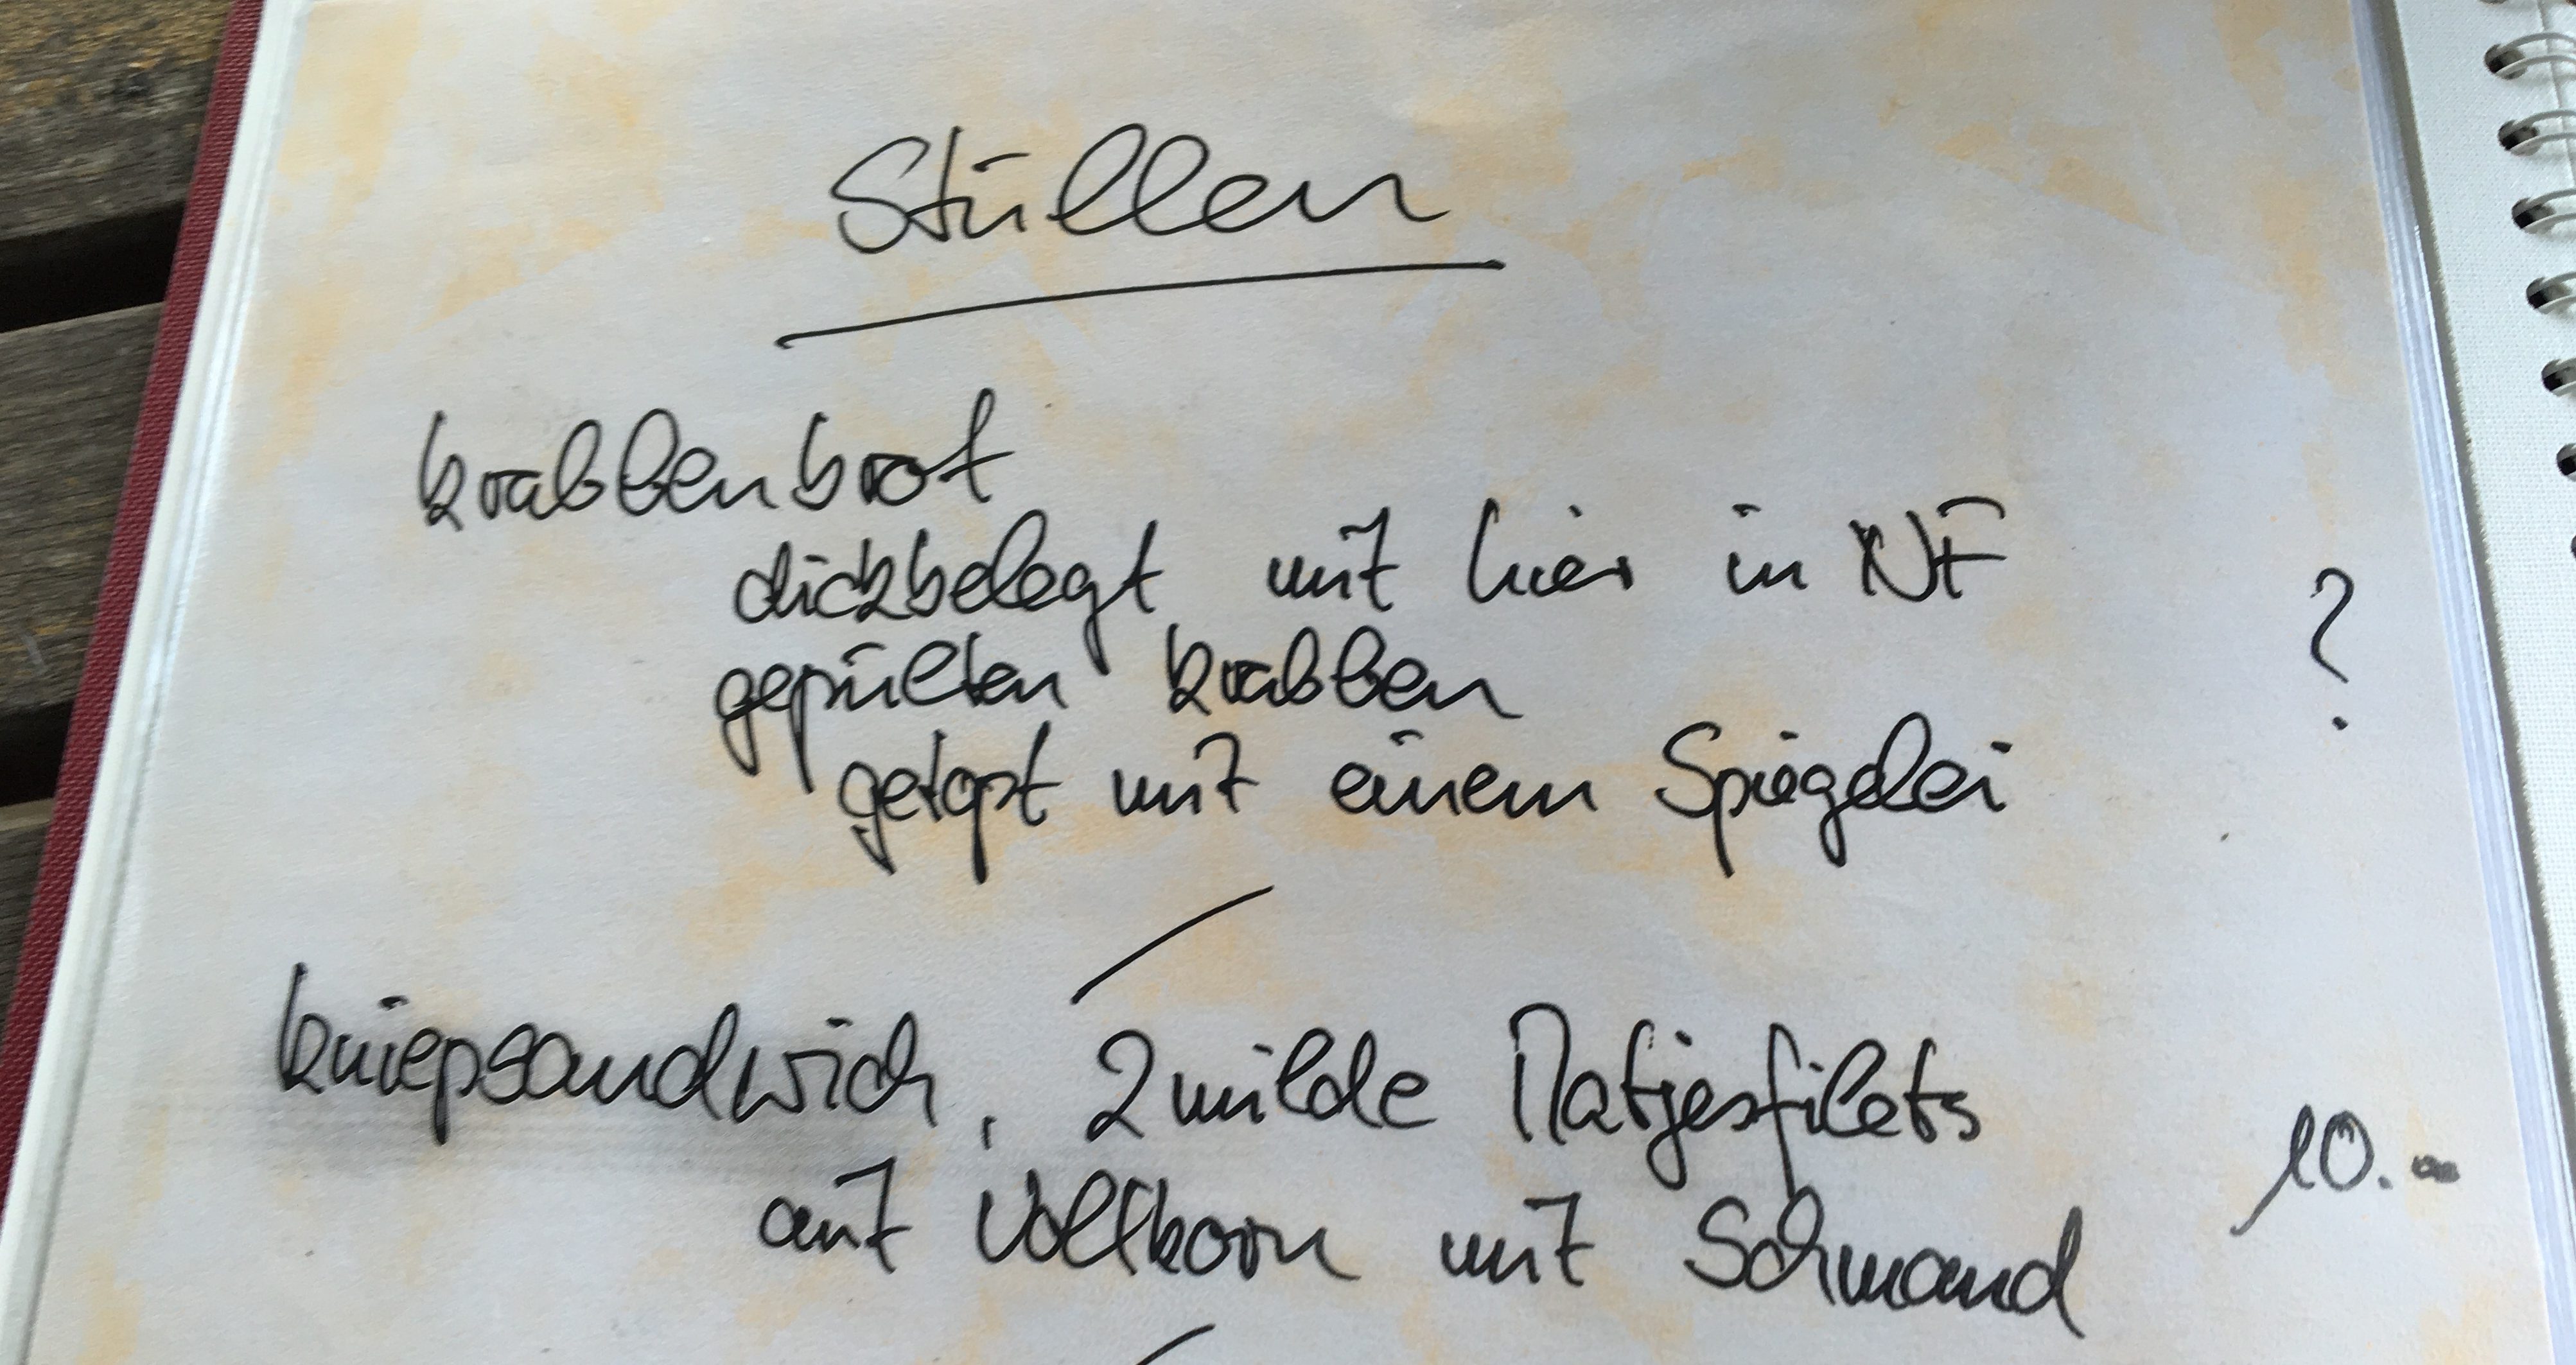 Stüllen
Krabbenbrot
dickbelegt mit hier in NF
gepülten Krabben
?
getopt mit einem Spiegelei
Kniepsandwich, 2 milde Matjesfilets
auf Vollkorn mit Schmand
10.-